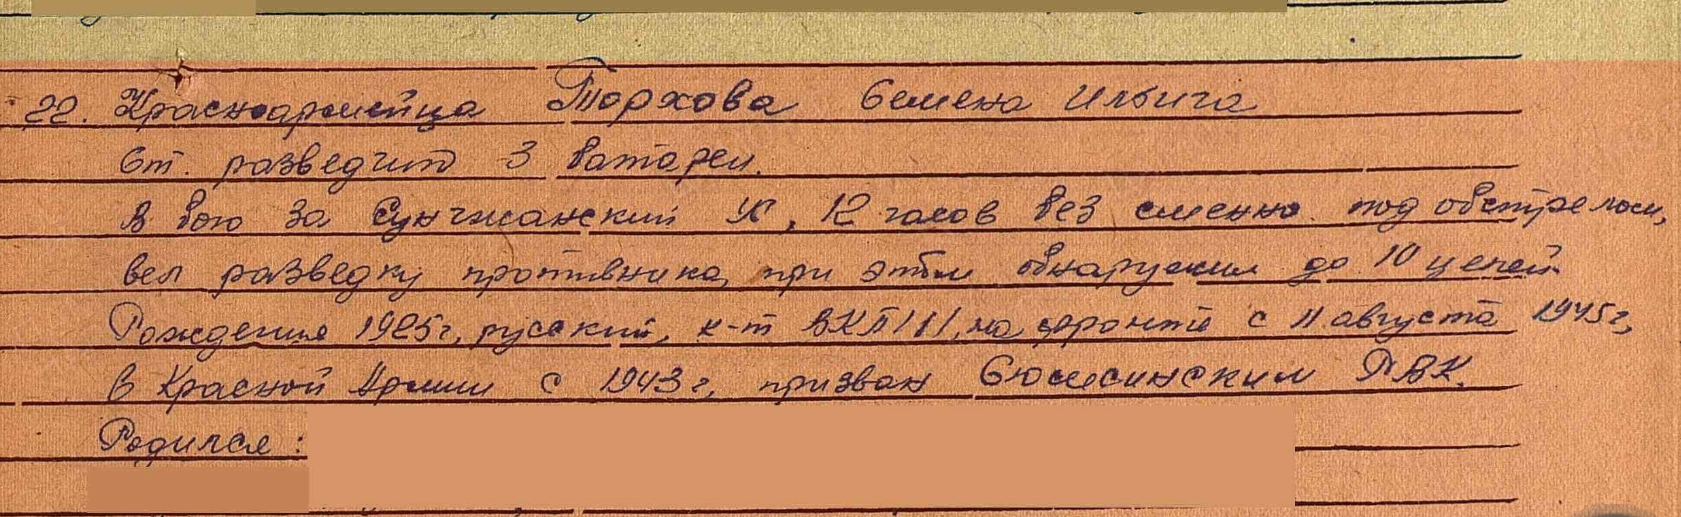 22. Красноармейца Торхова Семена Ильича
Ст. разведчик 3 батареи.
В бою за Сунчжанский УР, 12 часов без сменно под обстрелом,
вел разведку противника, при этом обнаружил до 10 целей.
Рождения 1925г, русский, к-т ВКП/б/, на фронте с 11 августа 1945г,
в Красной Армии с 1943г, призван Сюмсинским РВК.
Родился: